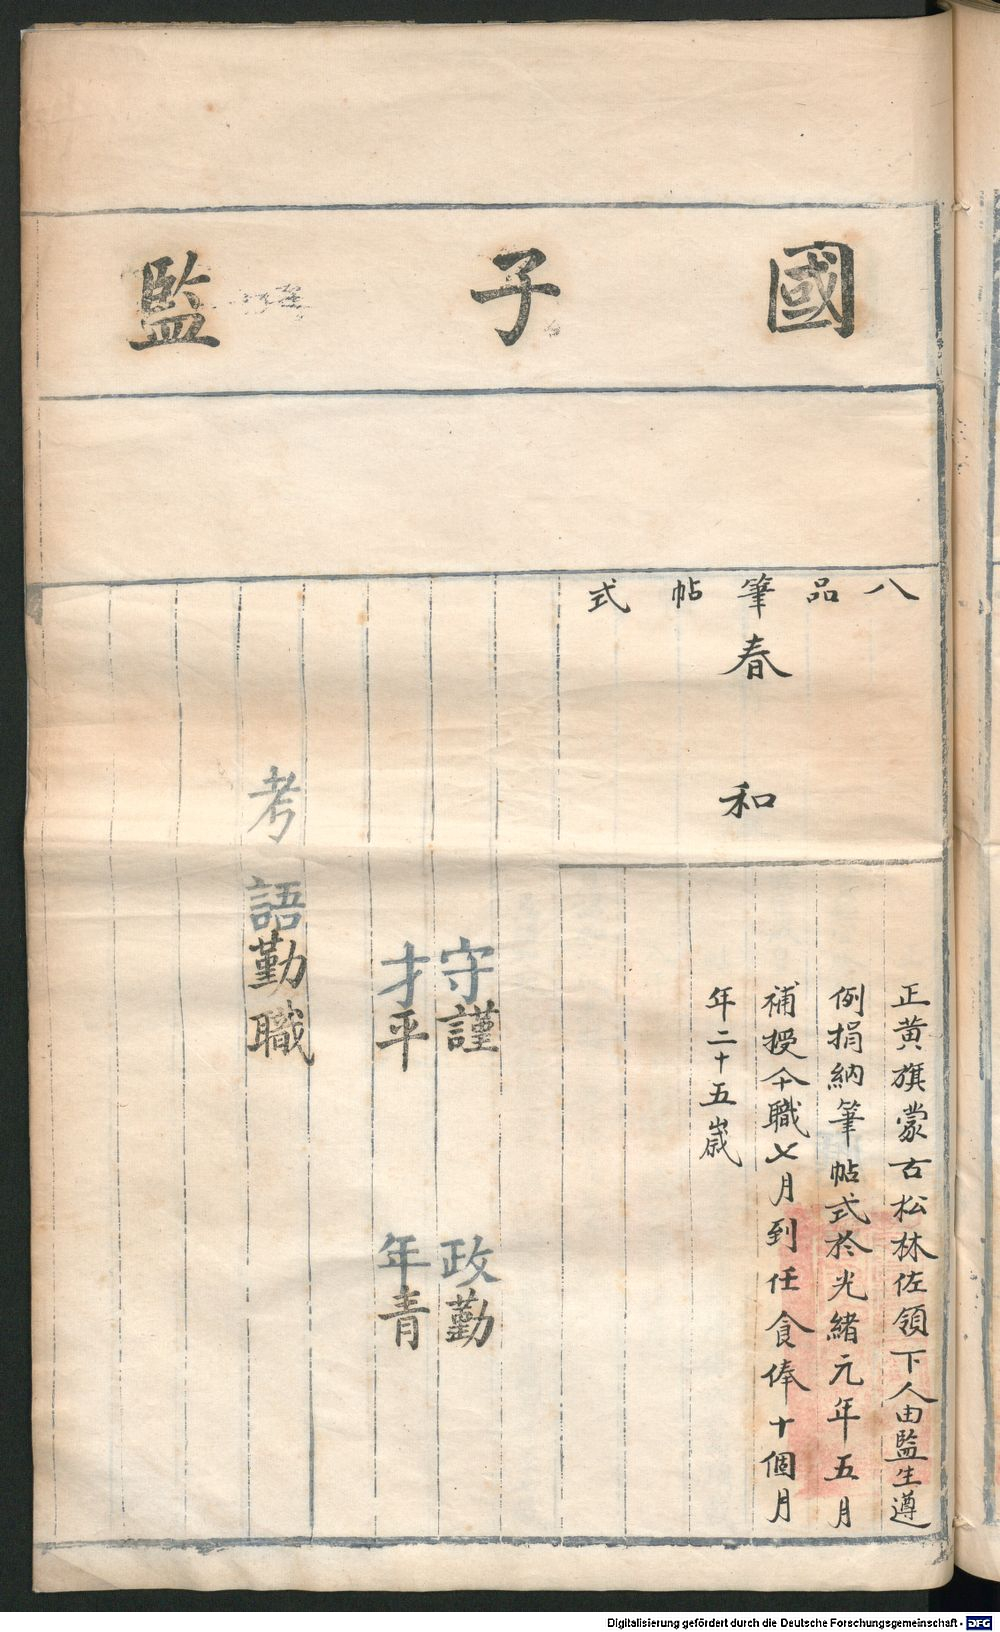 國子監
八品筆帖式
春和
正黃旗蒙古松林佐領下人由監生遵
例捐納筆帖式於光緒元年五月
補授今職七月到任食俸十個月
年二十五歲
守謹
政勤
才平
年青
考語勤職
Digitalisierung gefördert durch die Deutsche Forschungsgemeinschaft - DFG